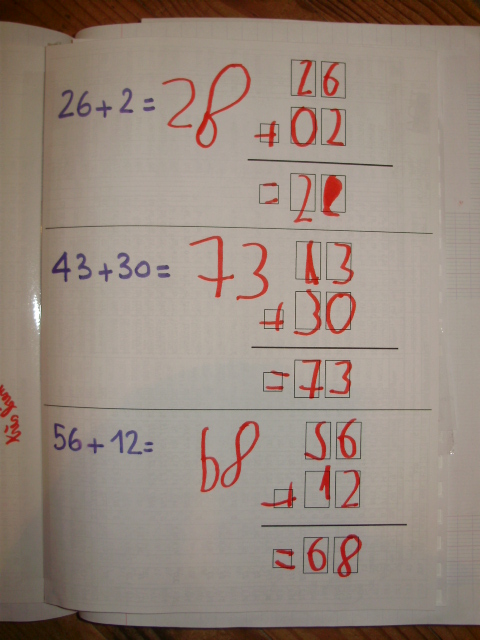 26+2= 28
26
+ 02
= 2
43+30= 73
13
+ 30
= 73
56+12= 68
56
+ 12
= 68